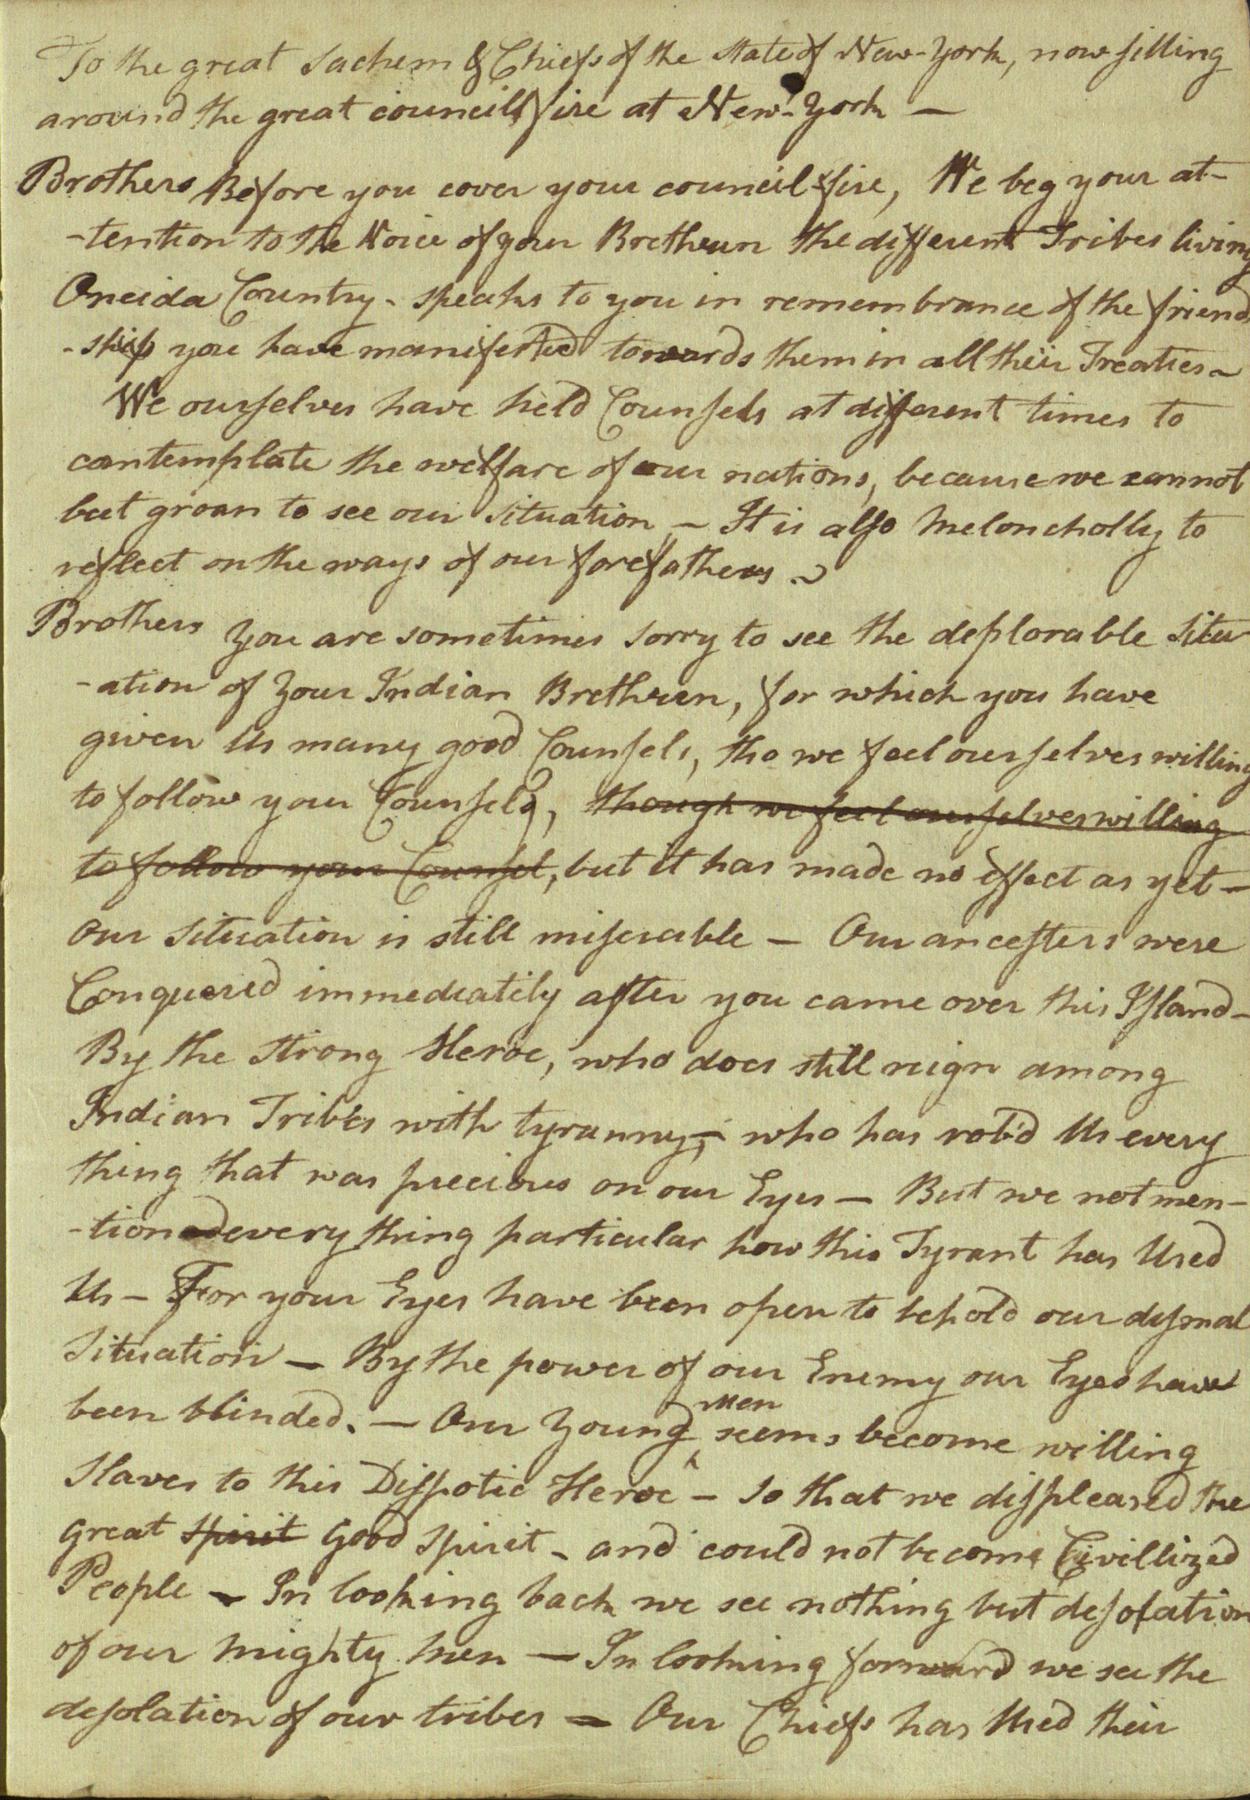 To the great Sachem & Chiefs of the State of New-York, now sitting
around the great council fire at New-York —
Brothers Before you cover your council-fire, We beg your at-
-tention to the Voice of your Brethren the different Tribes living
Oneida Country - speaks to you in remembrance of the friend
-ship you have manifested towards them in all their Treaties ~
We ourselves have held Counsels at different times to
contemplate the welfare of our nations, because we cannot
but groan to see our Situation — It is also Meloncholly to
reflect on the ways of our forefathers ~
Brothers You are sometimes sorry to see the deplorable Situ
-ation of Your Indian Brethren, for which you have
given Us many good Counsels, tho we feel ourselves willing
to follow your Counsels, though we feel ourselves willing
to follow your Counsel, but it has made no effect as yet —
Our Situation is still miserable — Our ancesters were
Conquered immediately after you came over this Island —
By the Strong Heroe, who does still reign among
Indian Tribes with tyranny; who has rob'd Us every
thing that was precious on our Eyes — But we not men-
-tioned every thing particular how this Tyrant has Used
Us — For your Eyes have been open to behold our dismal
Situation — By the power of our Enemy our Eyes have
been blinded. — Our Young Men seems become willing
Slaves to this Dispotic Heroe — So that we displeased the
great Spirit Good Spirit - and could not become Civillized
People — In looking back we see nothing but desolation
of our mighty men — In looking forward we see the
desolation of our tribes — Our Chiefs has Used their